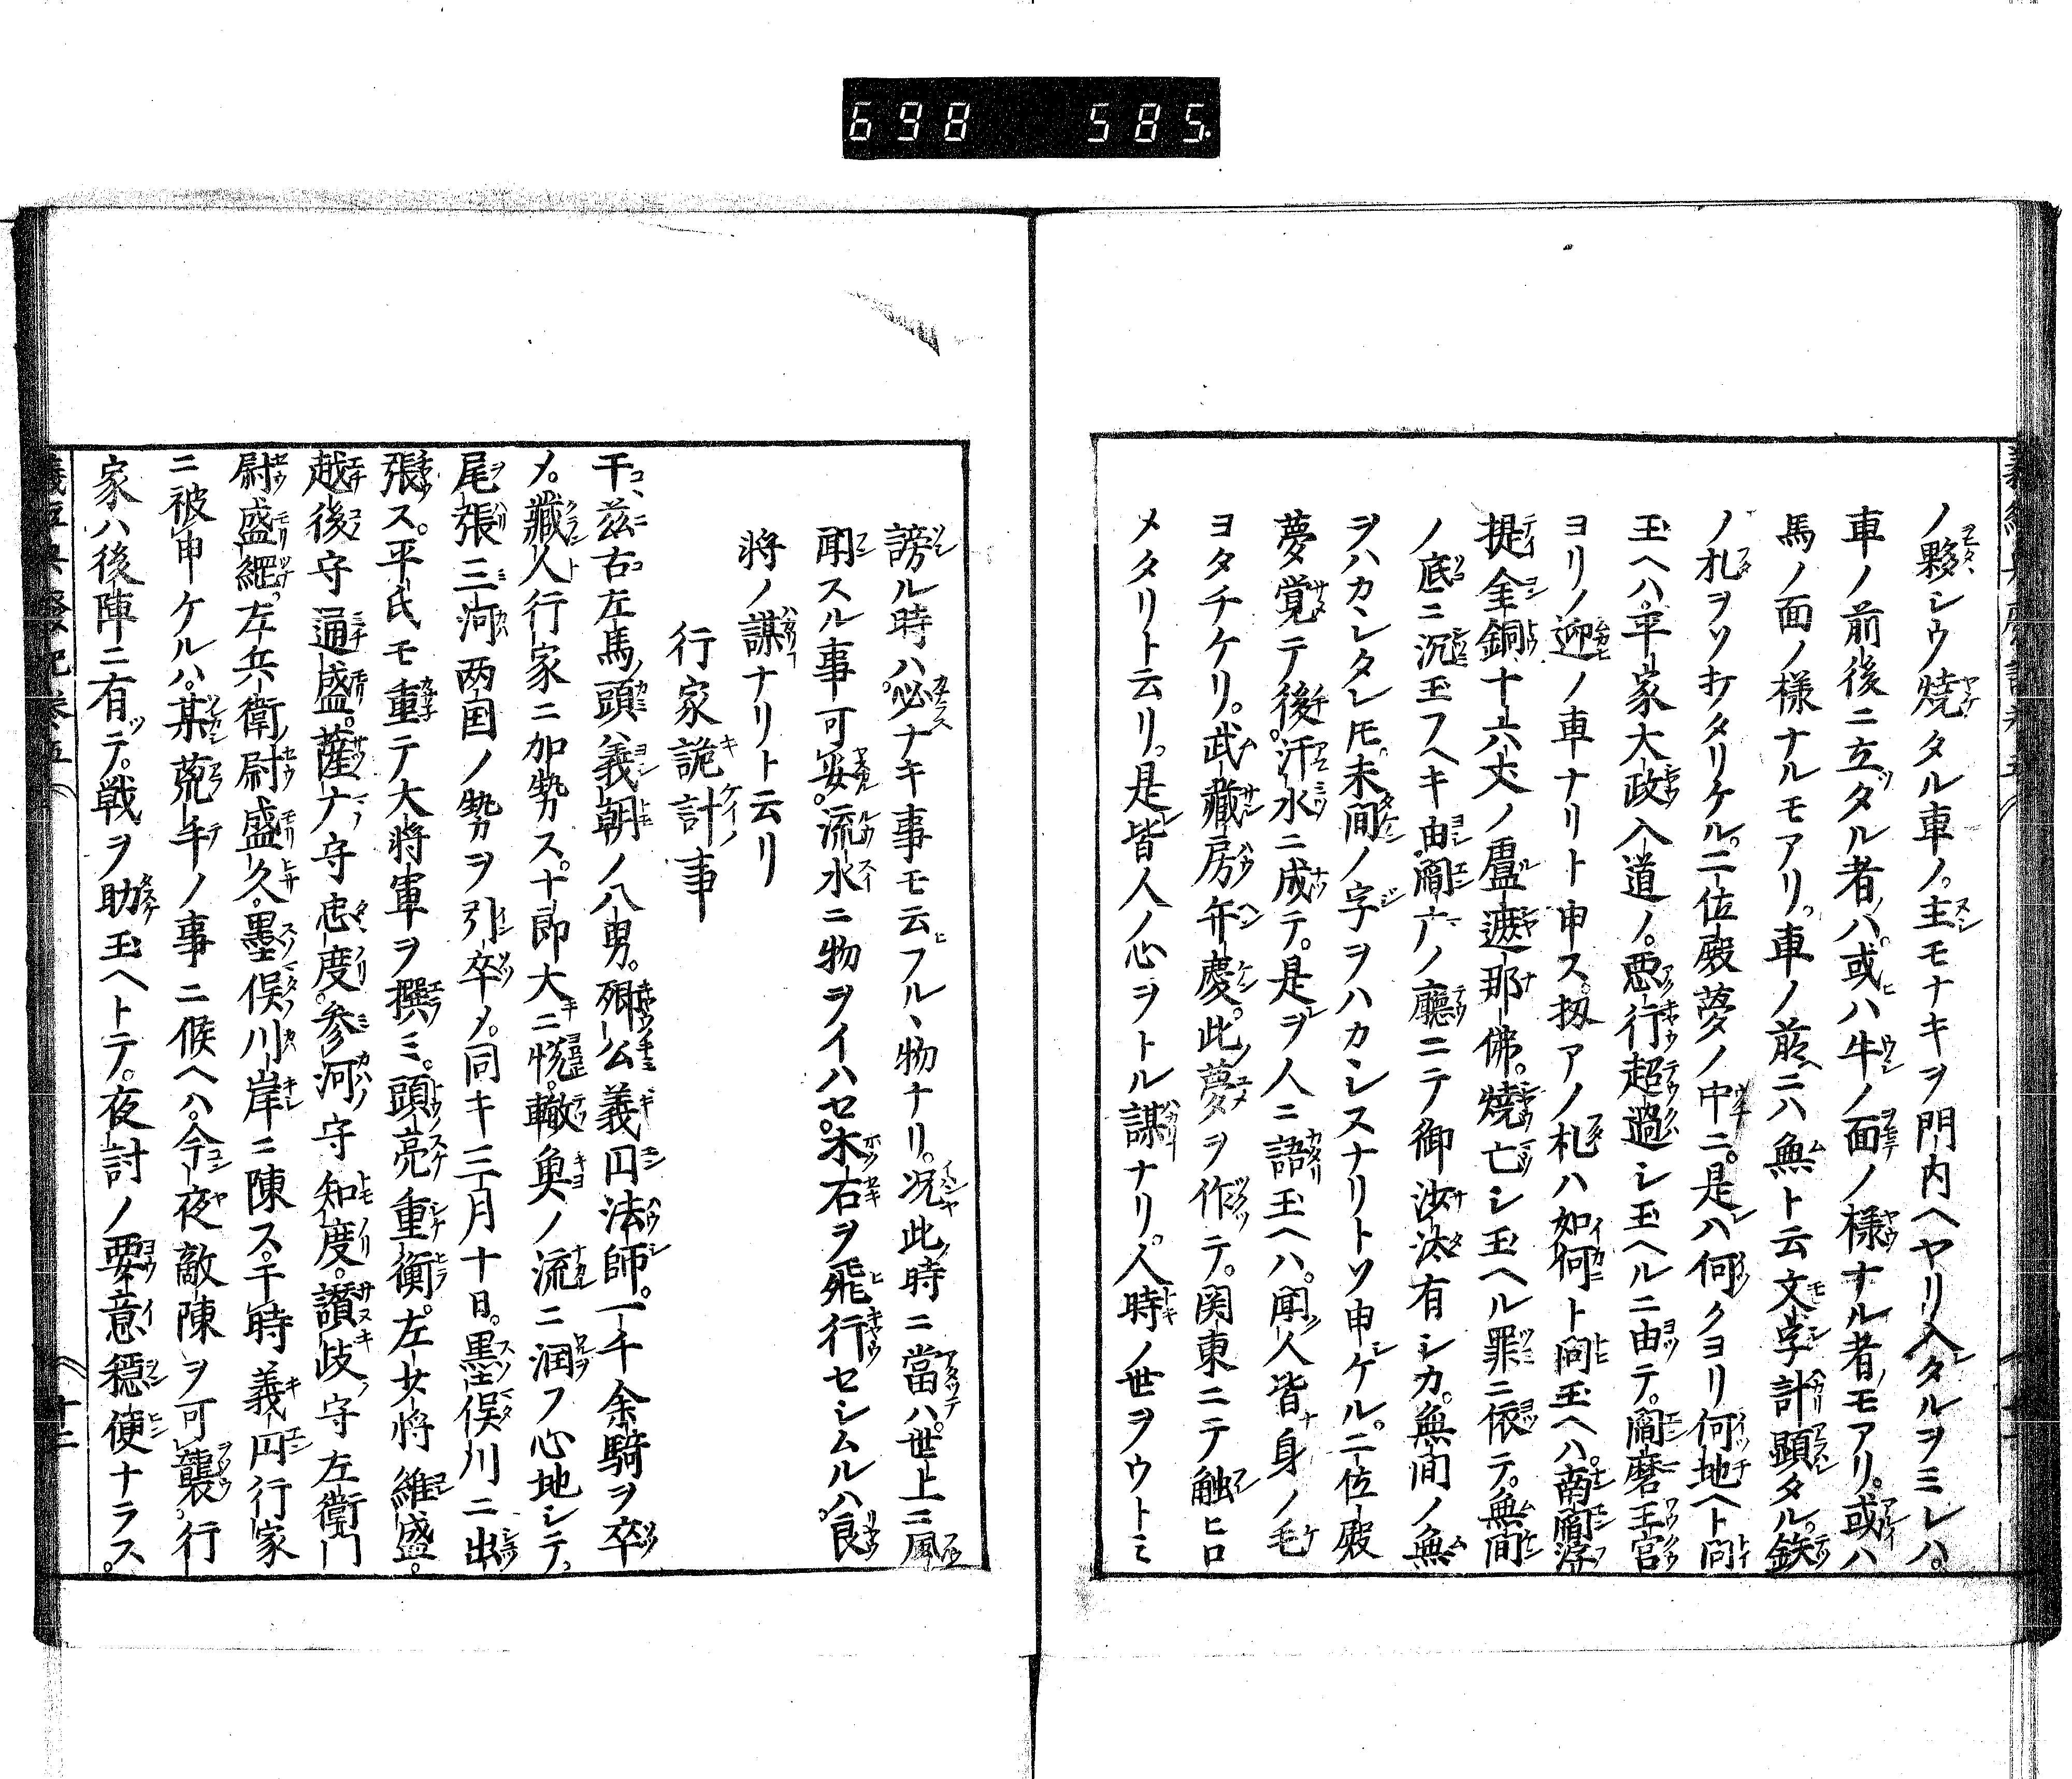 698 585.
ノ夥シウ燒タル車ノ。主モナキヲ門内ヘヤリ入タルヲミレハ。
車ノ前後ニ立タル者ハ。或ハ牛ノ面ノ様ナル者モアリ。或ハ
馬ノ面ノ様ナルモアリ。車ノ前ニハ無ト云文字計顕タル。鉄
ノ札ヲソ打タリケル。二位殿夢ノ中ニ。是ハ何クヨリ何地ヘト問
玉ヘハ。平家大政入道ノ。悪行超過シ玉ヘルニ由テ。閻磨王宮
ヨリノ迎ノ車ナリト申ス。扨アノ札ハ如何ト問玉ヘハ。南閻浮
提金銅十六丈ノ盧遮那佛。燒亡シ玉ヘル罪ニ依テ。無間
ノ底ニ沉玉フヘキ由。閻广ノ廳ニテ御沙汰有シカ。無間ノ無
ヲハカシレタレ𪜈。未間ノ字ヲハカシレスナリトソ申ケル。二位殿
夢覚テ後。汗水ニ成テ。是ヲ人ニ語玉ヘハ。聞人皆身ノ毛
ヨタチケリ。武藏房弁慶。此夢ヲ作テ。関東ニテ触ヒロ
メタリト云リ。是皆人ノ心ヲトル謀ナリ。人時ノ世ヲウトミ
謗ル時ハ。必ナキ事モ云フル、物ナリ。况此時ニ當ハ。世上ニ風
聞スル事可妥。流水ニ物ヲイハセ。木右ヲ飛行セシムルハ。良
将ノ謀ナリト云リ
行家詭計事
干茲右左馬頭義朝ノ八男。卿公義円法師。一千余騎ヲ卒
メ。藏人行家ニ加勢ス。十郎大ニ悦。轍魚ノ流ニ潤フ心地シテ。
尾張三河両国ノ勢ヲ引卒メ。同キ三月十日。墨俣川ニ出
張ス。平氏モ重テ大将軍ヲ撰ミ。頭亮重衡。左少将維盛。
越後守通盛。薩广守忠度。参河守知度。讃歧守左衛門
尉盛綱。左兵衛尉盛久。墨俣川岸ニ陳ス。干時義円行家
ニ被申ケルハ。某荒手ノ事ニ候ヘハ。今夜敵陳ヲ可襲。行
家ハ後陣ニ有テ。戦ヲ助玉ヘトテ。夜討ノ要意穏便ナラス。
十二